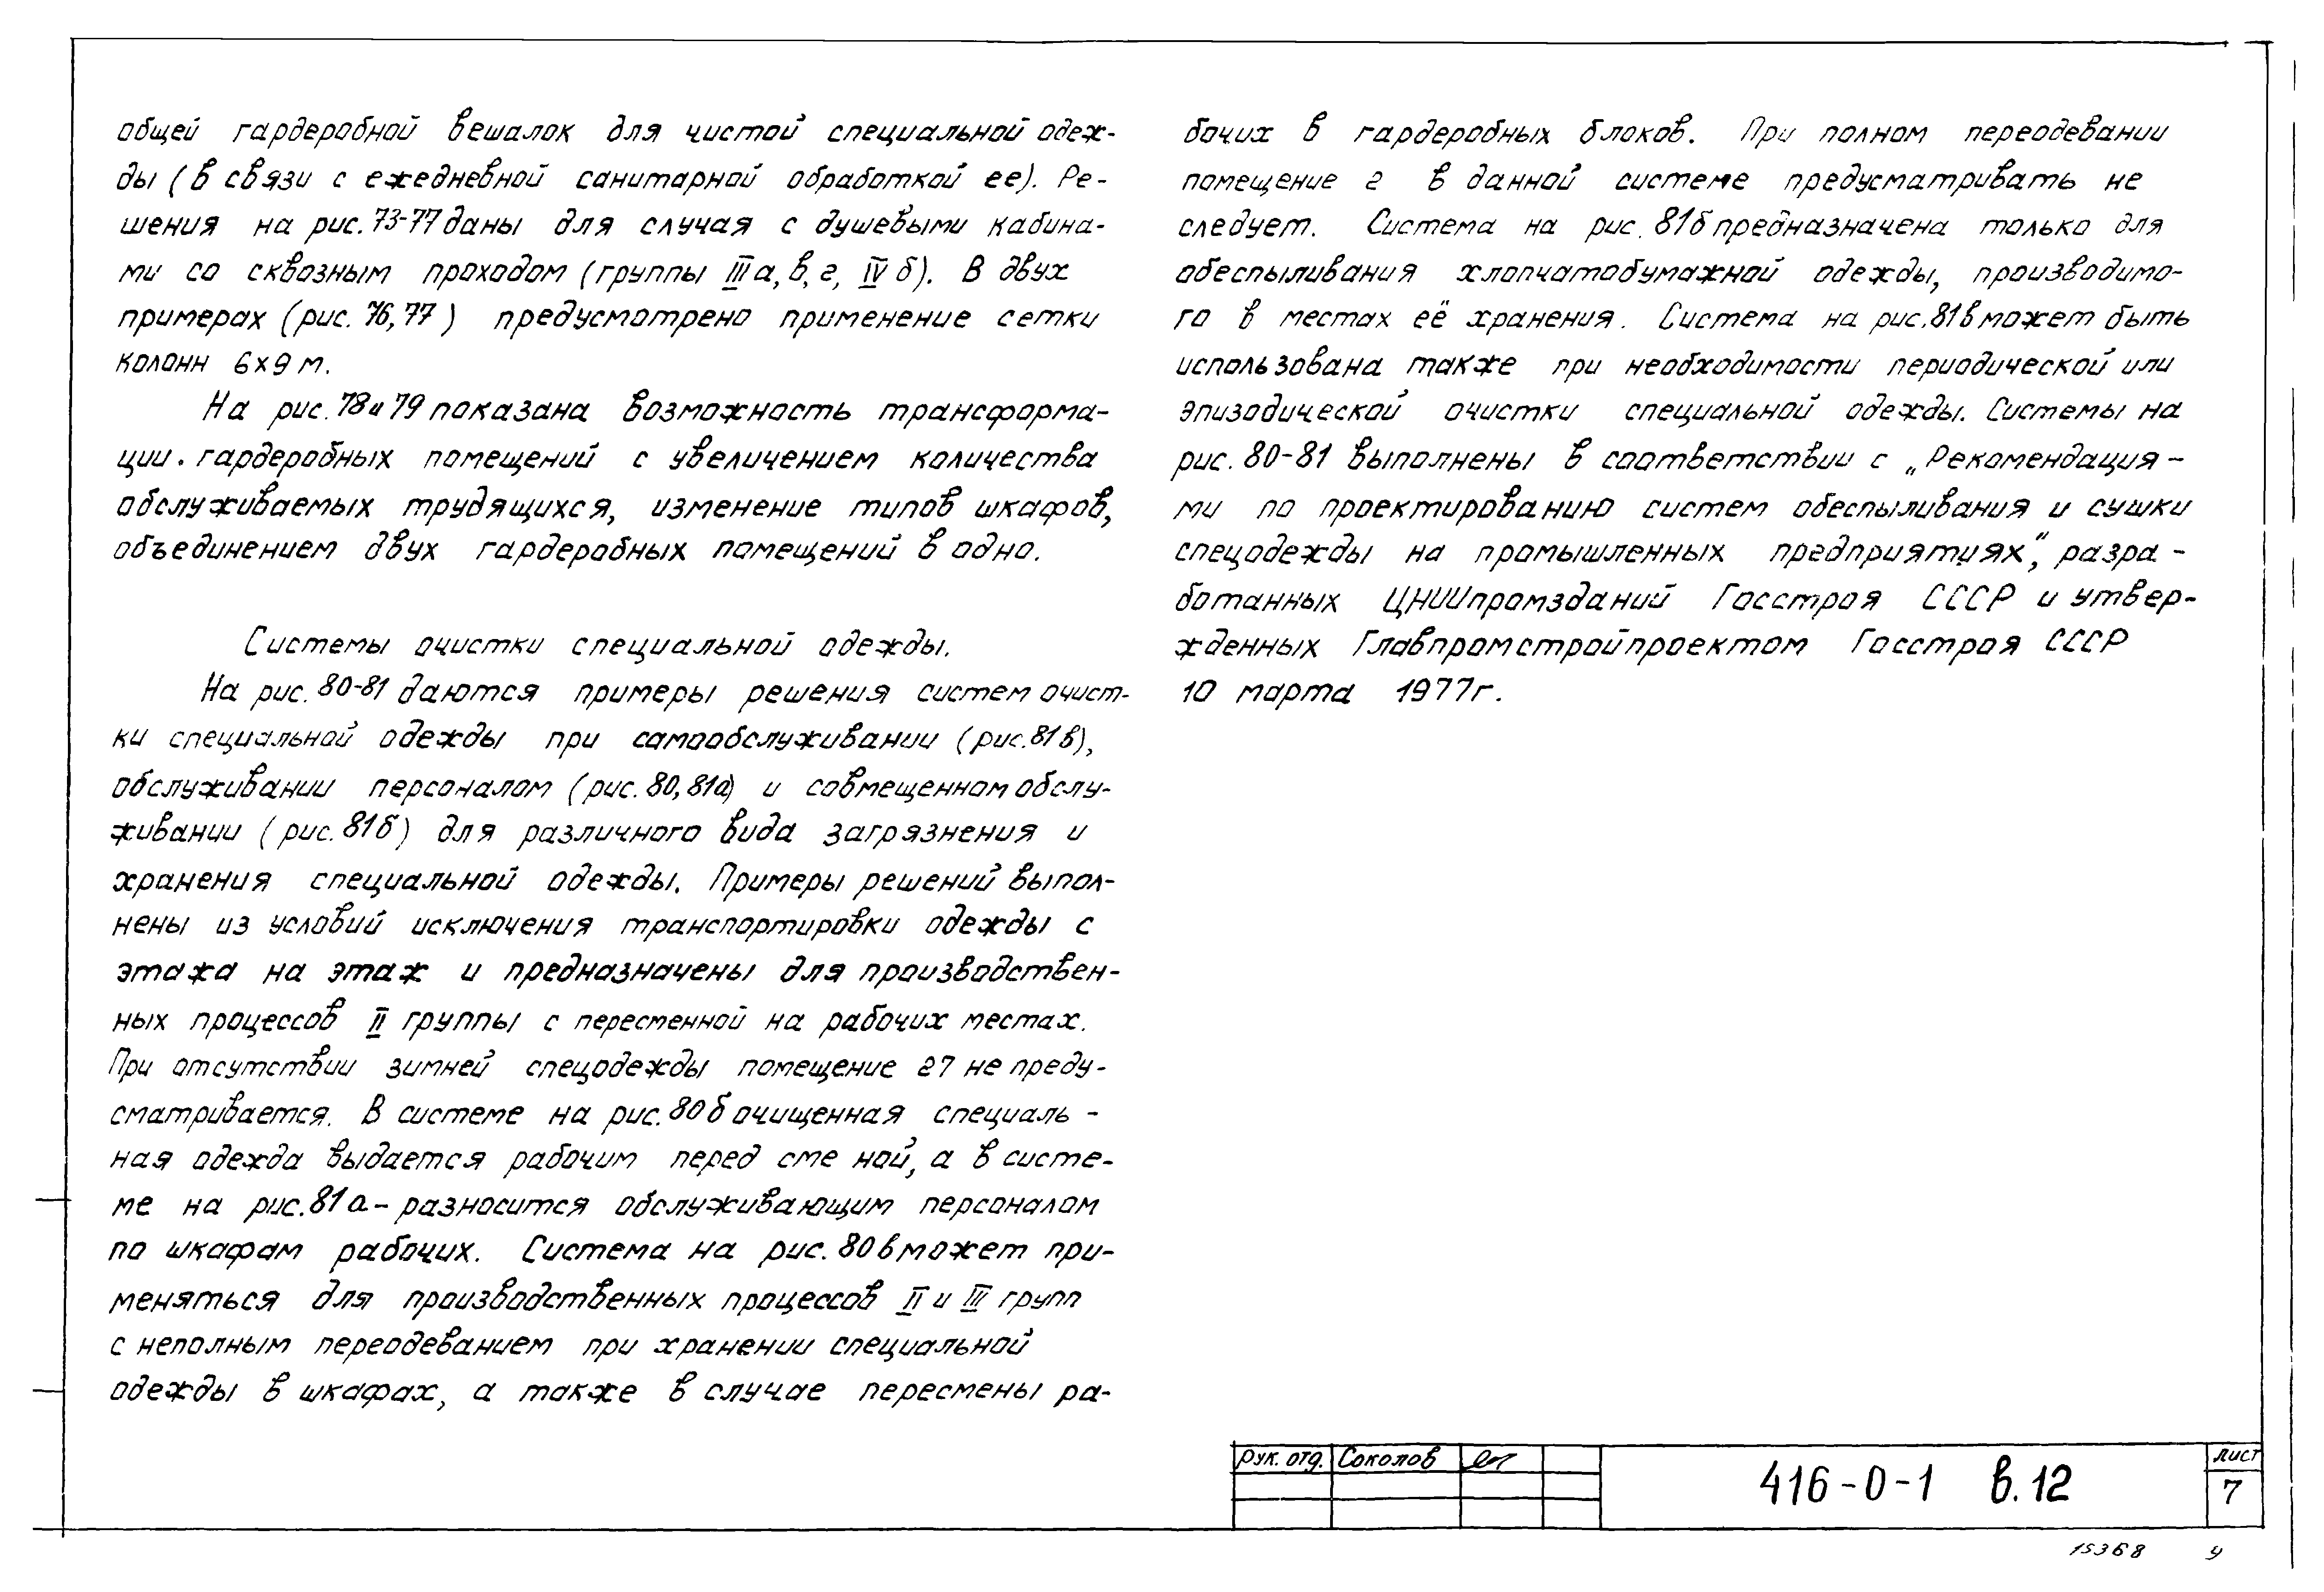 общей гардеробной вешалок для чистой специальной одеж-
ды (в связи с ежедневной санитарной обработкой ее). Ре-
шения на рис. 73-77 даны для случая с душевыми кабина-
ми со сквозным проходом (группы III а, в, г, IV б). В двух
примерах (рис. 76, 77) предусмотрено применение сетки
колонн 6х9 м.
На рис. 78 и 79 показана возможность трансформа-
ции. гардеробных помещений с увеличением количества
обслуживаемых трудящихся, изменение типов шкафов,
объединением двух гардеробных помещений в одно.
Системы очистки специальной одежды.
На рис. 80-81 даются примеры решения систем очист-
ки специальной одежды при самообслуживании (рис. 81 в),
обслуживании персоналом (рис. 80, 81а) и совмещенном обслу-
живании (рис. 81б) для различного вида загрязнения и
хранения специальной одежды. Примеры решений выпол-
нены из условий исключения транспортировки одежды с
этажа на этаж и предназначены для производствен-
ных процессов II группы с пересменной на рабочих местах.
При отсутствии зимней спецодежды помещение 27 не преду-
сматривается. В системе на рис. 80 б очищенная специаль-
ная одежда выдается рабочим перед сме ной, а в систе-
ме на рис. 81 а - разносится обслуживающим персоналом
по шкафам рабочих. Система на рис. 80 в может при-
меняться для производственных процессов II и III групп
с неполным переодеванием при хранении специальной
одежды в шкафах, а также в случае пересмены ра-
бочих в гардеробных блоков. При полном переодевании
помещение г в данной системе предусматривать не
следует. Система на рис. 81б предназначена только для
обеспыливания хлопчатобумажной одежды, производимо-
го в местах её хранения. Система на рис. 81 в может быть
использована также при необходимости периодической или
эпизодической очистки специальной одежды. Системы на
рис. 80-81 выполнены в соответствии с „Рекомендация-
ми по проектированию систем обеспыливания и сушки
спецодежды на промышленных предприятиях“, разра-
ботанных ЦНИИпромзданий Госстроя СССР и утвер-
жденных Главпромстройпроектом Госстроя СССР
10 марта 1977г.
Рук. отд. Соколов
416-0-1 в. 12
лист
7
15368 4